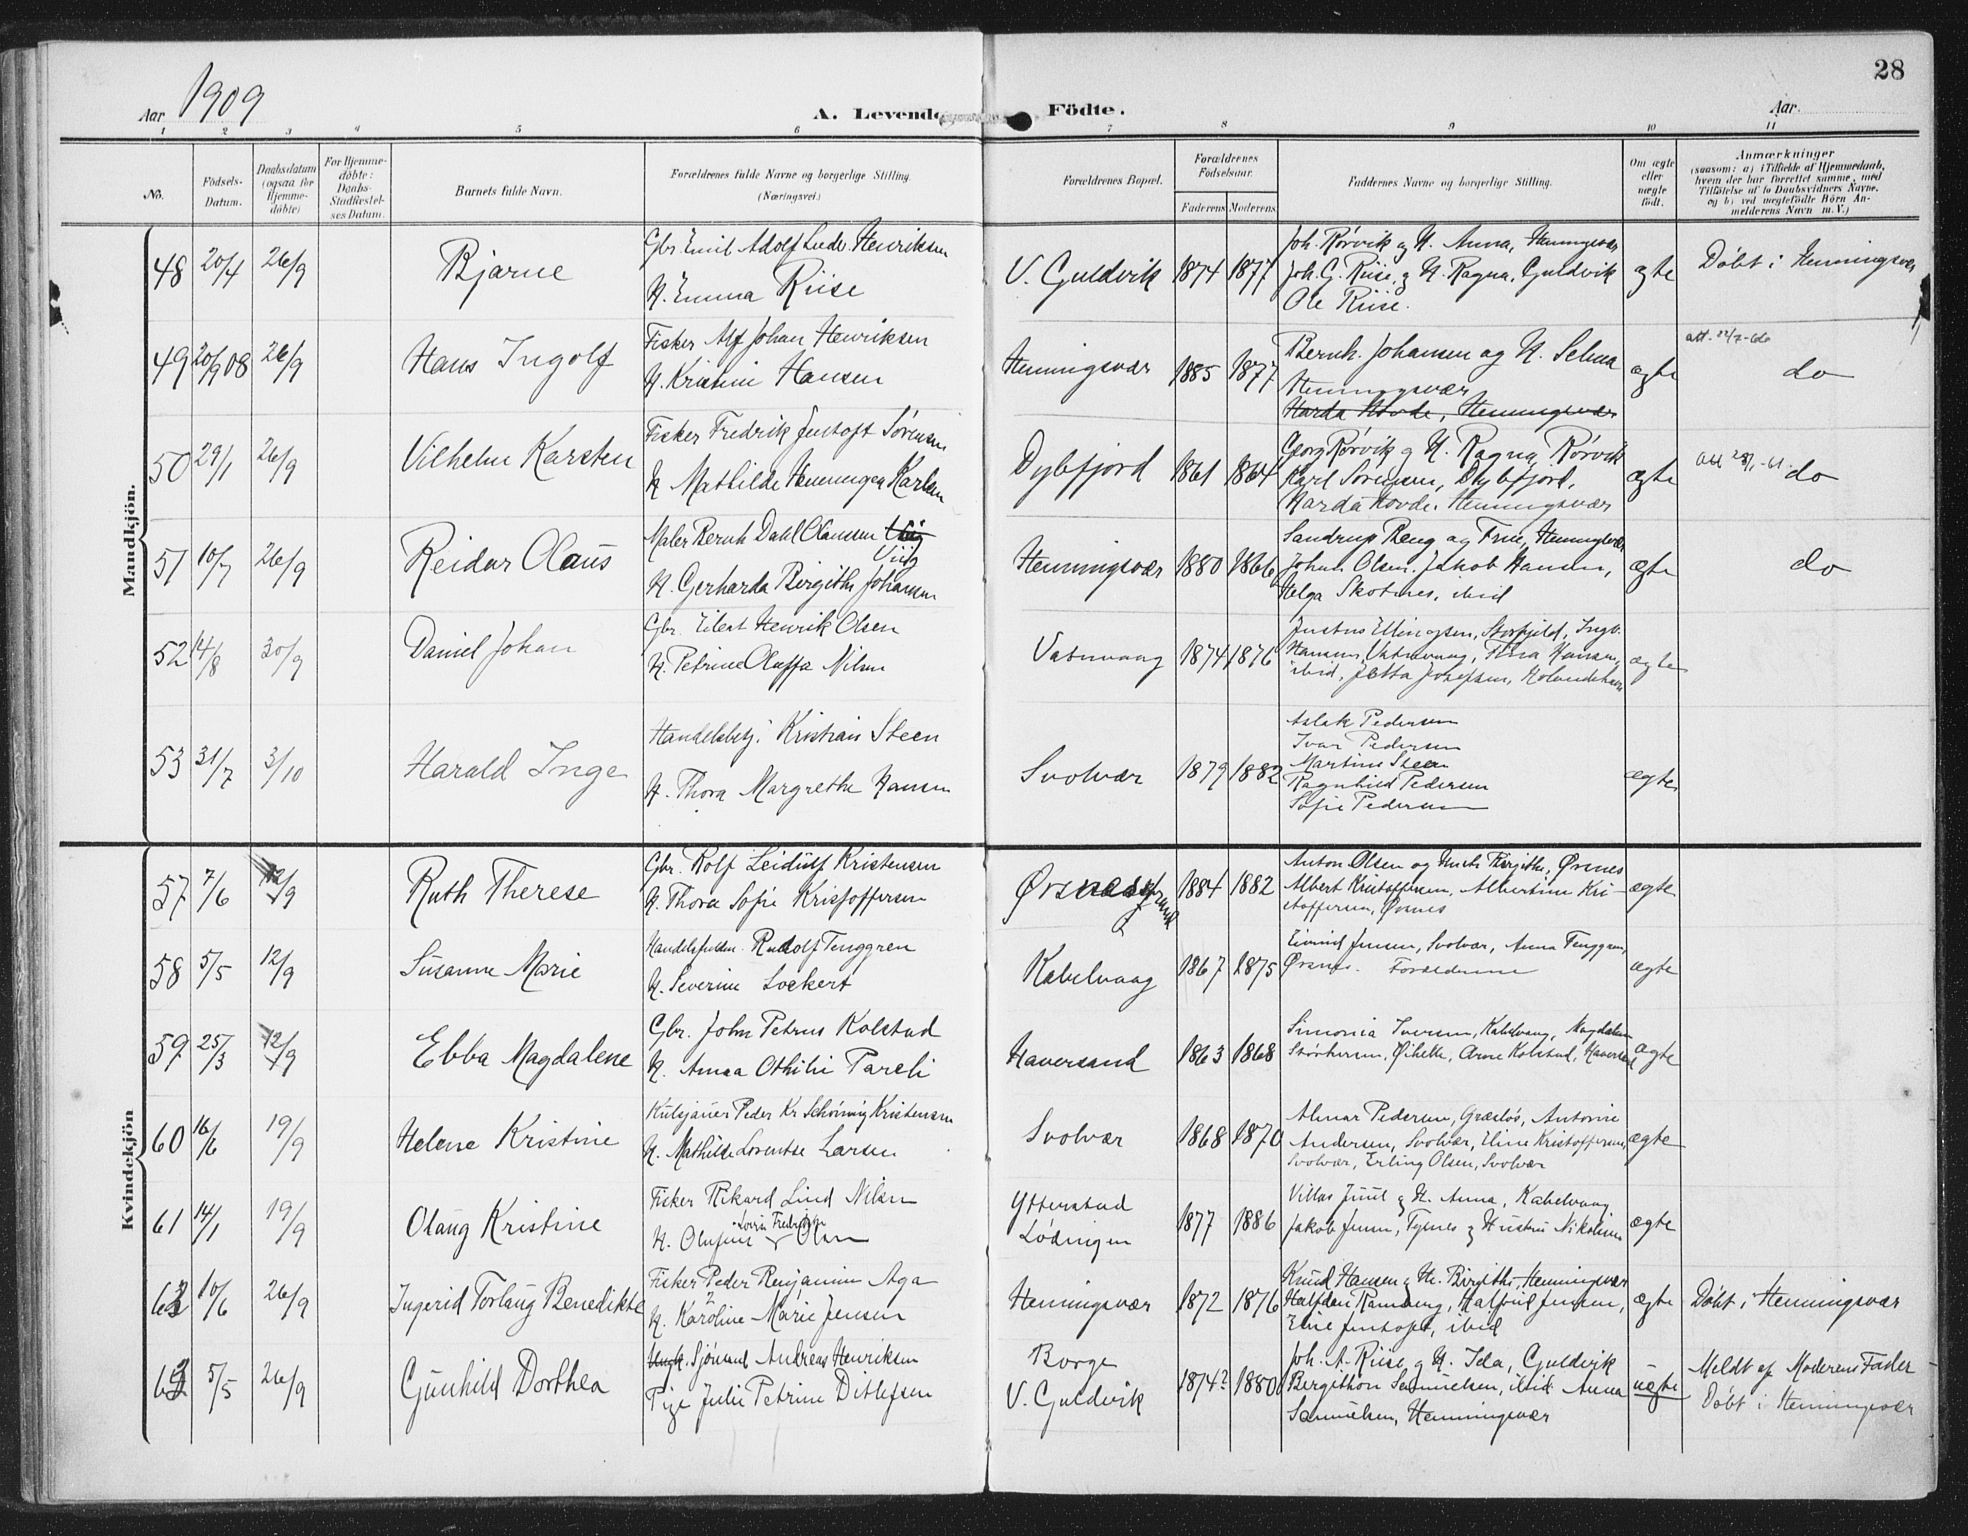 28
Aar 1909
A. Levende Födte.
Aar.
1 2 3 4 5 6 7 8 9 10 11
No.
Födsels-Datum.
Daabsdatum (ogsaa for Hjemmedöbte)
For Hjemmedöbte: Daabs-Stadfæstelses Datum.
Barnets fulde Navn.
Forældrenes fulde Navne og borgerlige Stilling. (Næringsvei.)
Forældrenes Bopæl.
Forældrenes Födselsaar.
Faderens Moderens
Faddernes Navne og borgerlige Stilling.
Om ægte eller uægte födt.
Anmærkninger
(saasom: a) i Tilfælde af Hjemmedaab, hvem der har forrettet samme, med Tilföielse af to Daabsvidners Navne, og b) ved uægtefödte Börn Anmelderens Navn m. V.)
Mandkjön.
48 20/4 26/9 Bjarne
Gbr. Emil Adolf Henriksen
H. Emma Riise
V. Guldvik 1874 1877
Joh. Rørvik og H. Anna, Henningsvær
Joh. G. Riise, og H. Ragna, Guldvik
Ole Riise.
ægte Døbt i Henningsvær
49 20/9 08 26/9 Hans Ingolf
Fisker Alf Johan Henriksen
H. Kristine Hansen
Henningsvær 1885 1877
Bernh. Johansen og H. Selma
Henningsvær
Harda Hovde, Henningsvær
ægte do
50 29/1 26/9 Vilhelm Karsten
Fisker Fredrik Jentoft Sørensen
H. Mathilde Henningea Karlsen
Dybfjord 1861 1864
Georg Rørvik og H. Ragna Rørvik
Karl Sørensen, Dybfjord,
Harda Hovde, Henningsvær
ægte do
51 10/7 26/9 Reidar Olaus
Maler Bernh Dahl Olaussen
H. Gerharda Birgithe Johansen
Henningsvær 1880 1866
Sandrup Beng og Frue, Henningsvær
Johan Olsen, Jakob Hansen,
Helga Skotnes, ibid
ægte do
52 14/8 30/9 Daniel Johan
Gbr. Eilert Henrik Olsen
H. Petrine Oluffa Nilsen
Vatnvaag 1874 1876
Justus Ellingsen, Storfjeld, Ingv.
Hansen, Vatnvaag, Tina Hansen,
ibid, Jetta Josefsen,
ægte
53 31/7 3/10 Harald Inge
Handelsbetj. Kristian Steen
H. Thora Margrethe Hansen
Svolvær 1879 1882
Aslak Pedersen
Ivar Pedersen
Martine Steen
Ragnhild Pedersen
Sofie Pedersen
ægte
Kvindekjön
57 7/6 12/9 Ruth Therese
Gbr. Rolf Leidulf Kristensen
H. Thora Sofie Kristoffersen
Ørsnesstrand 1884 1882
Anton Olsen og Hustr Birgithe, Ørsnes
Albert Kristoffersen, Albertine Kri-
stoffersen, Ørsnes
ægte
58 5/5 12/9 Susanne Marie
Rudolf Tenggren
H. Severine Lockert
Kabelvaag 1867 1875
Eivind Jensen, Svolvær, Anna Tenggren,
Ørsnes. Forældrene
ægte
59 25/3 12/9 Ebba Magdalene
Gbr. John Petrus Kolstad
H. Anna Othilie Pareli
Haversand 1863 1868
Simonia Iversen, Kabelvaag, Magdalene
Arne Kolstad, Haversand
ægte
60 16/6 19/9 Helene Kristine
Peder Kr Schøning Kristensen
H. Mathilde Lorentse Larsen
Svolvær 1868 1870
Almar Pedersen, Antonie
Andersen, Svolvær, Eline Kristoffersen,
Svolvær, Erling Olsen, Svolvær
ægte
61 14/1 19/9 Olaug Kristine
Fisker Rikard Lind Nilsen
H. Olufine Lovise Fredrikke Olsen
Ytterstad
Lødingen 1877 1886
Villas Juul og H. Anna, Kabelvaag
Jakob Jensen, Tysnes og Hustru Nikoline
ægte
62 10/6 26/9 Ingerid Torlaug Benedikte
Fisker Peder Benjamin Aga
H. Karoline Marie Jensen
Henningsvær 1872 1876
Knud Hansen og H. Birgithe, Henningsvær
Halfdan Ramberg, Halfrid Jensen,
Eline Jentoft, ibid
ægte Døbt i Henningsvær
63 5/5 26/9 Gunhild Dorthea
Ungk. Sjømand Andreas Henriksen
Pige Julie Petrine Ditlefsen
Borge
V. Guldvik 1874? 1880
Joh. A. Riise og H. Ida, Guldvik
Bergithon Samuelsen, ibid. Anna
Samuelsen, Henningsvær
uægte
Meldt af Moderens Fader
Døbt i Henningsvær